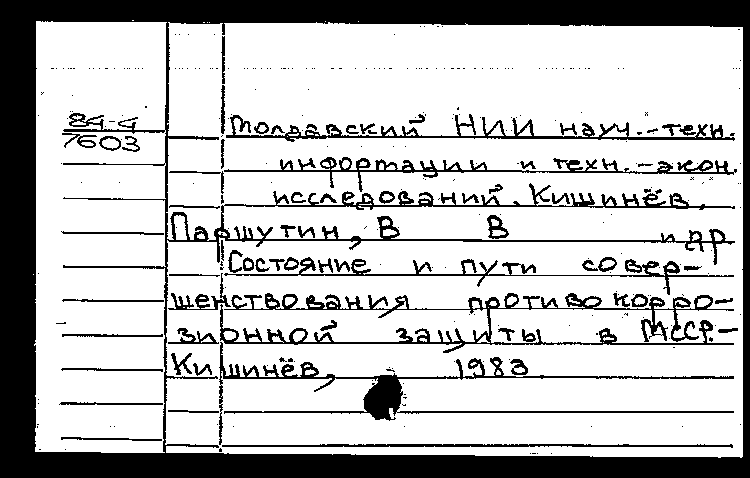 84-4
7603
Молдавский НИИ науч.-техн.
информации и техн.-экон.
исследований. Кишинёв.
Паршутин, В В и др
Состояние и пути совер-
шенствования противокорро-
зионной защиты в МССР.-
Кишинёв, 1983